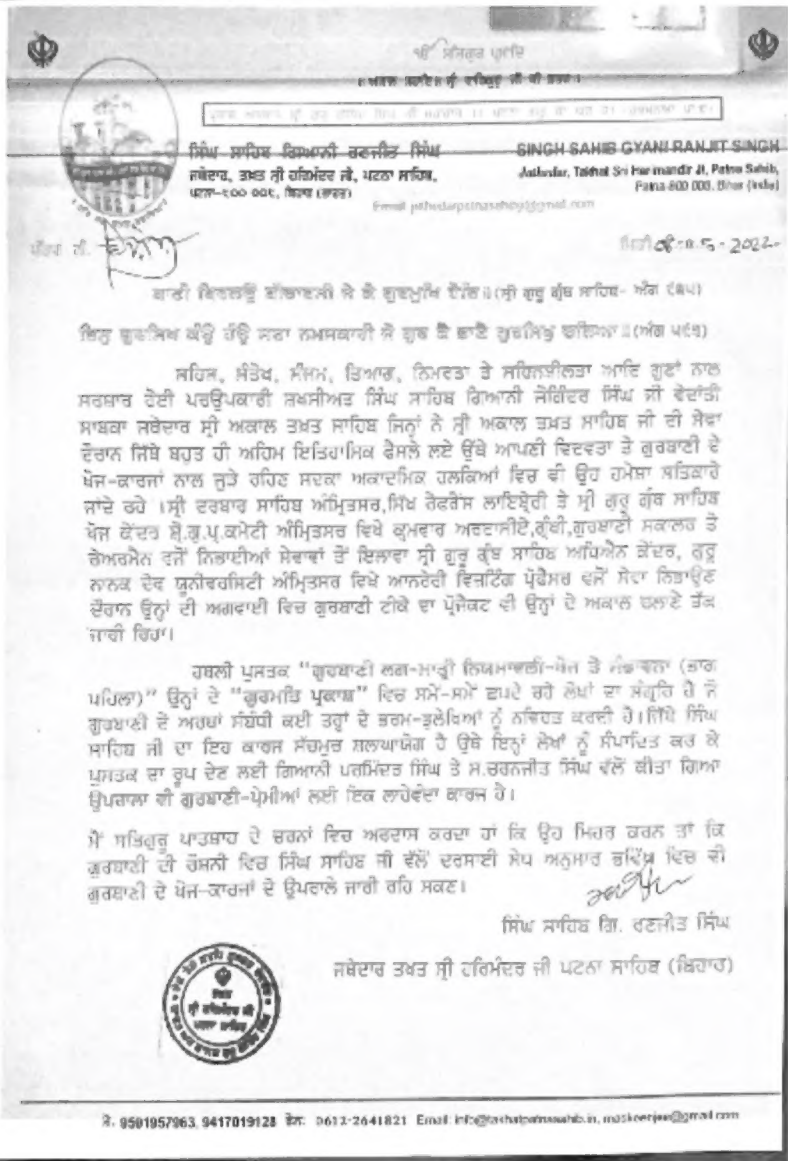 ੴ ਸਤਿਗੁਰ ਪ੍ਰਸਾਦਿ
ਸਿੰਘ ਸਾਹਿਬ ਗਿਆਨੀ ਰਣਜੀਤ ਸਿੰਘ
SINGH SAHIB GYANI RANJIT SINGH
ਜਥੇਦਾਰ, ਤਖਤ ਸ੍ਰੀ ਹਰਿਮੰਦਰ ਜੀ, ਪਟਨਾ ਸਾਹਿਬ,
Jathedar, Takhat Sri Harmandir Ji, Patna Sahib,
ਪਟਨਾ-੮੦੦ ੦੦੮, ਬਿਹਾਰ (ਭਾਰਤ)
Patna-800 008, Bihar (India)
ਮਿਤੀ 05 - 2022
ਬਾਣੀ ਬਿਰਲਉ ਬੀਚਾਰਸੀ ਜੇ ਕੋ ਗੁਰਮੁਖਿ ਹੋਇ॥(ਸ੍ਰੀ ਗੁਰੂ ਗ੍ਰੰਥ ਸਾਹਿਬ- ਅੰਗ ੯੩੫)
ਤਿਸੁ ਗੁਰਸਿਖ ਕੰਉ ਹੰਉ ਸਦਾ ਨਮਸਕਾਰੀ ਜੋ ਗੁਰ ਕੈ ਭਾਣੈ ਗੁਰਸਿਖੁ ਚਲਿਆ॥(ਅੰਗ ੫੯੩)
ਸਹਿਜ, ਸੰਤੋਖ, ਸੰਜਮ, ਤਿਆਗ, ਨਿਮਰਤਾ ਤੇ ਸਹਿਨਸ਼ੀਲਤਾ ਆਦਿ ਗੁਣਾਂ ਨਾਲ
ਸਰਸ਼ਾਰ ਹੋਈ ਪਰਉਪਕਾਰੀ ਸ਼ਖਸੀਅਤ ਸਿੰਘ ਸਾਹਿਬ ਗਿਆਨੀ ਜੋਗਿੰਦਰ ਸਿੰਘ ਜੀ ਵੇਦਾਂਤੀ
ਸਾਬਕਾ ਜਥੇਦਾਰ ਸ੍ਰੀ ਅਕਾਲ ਤਖ਼ਤ ਸਾਹਿਬ ਜਿਨ੍ਹਾਂ ਨੇ ਸ੍ਰੀ ਅਕਾਲ ਤਖ਼ਤ ਸਾਹਿਬ ਜੀ ਦੀ ਸੇਵਾ
ਦੌਰਾਨ ਜਿੱਥੇ ਬਹੁਤ ਹੀ ਅਹਿਮ ਇਤਿਹਾਸਿਕ ਫੈਸਲੇ ਲਏ ਉੱਥੇ ਆਪਣੀ ਵਿਦਵਤਾ ਤੇ ਗੁਰਬਾਣੀ ਦੇ
ਖੋਜ-ਕਾਰਜਾਂ ਨਾਲ ਜੁੜੇ ਰਹਿਣ ਸਦਕਾ ਅਕਾਦਮਿਕ ਹਲਕਿਆਂ ਵਿਚ ਵੀ ਉਹ ਹਮੇਸ਼ਾ ਸਤਿਕਾਰੇ
ਜਾਂਦੇ ਰਹੇ ।ਸ੍ਰੀ ਦਰਬਾਰ ਸਾਹਿਬ ਅੰਮ੍ਰਿਤਸਰ,ਸਿੱਖ ਰੈਫਰੈਂਸ ਲਾਇਬ੍ਰੇਰੀ ਤੇ ਸ੍ਰੀ ਗੁਰੂ ਗ੍ਰੰਥ ਸਾਹਿਬ
ਖੋਜ ਕੇਂਦਰ ਸ਼੍ਰੋ.ਗੁ.ਪ੍ਰ.ਕਮੇਟੀ ਅੰਮ੍ਰਿਤਸਰ ਵਿਖੇ ਕ੍ਰਮਵਾਰ ਅਰਦਾਸੀਏ,ਗ੍ਰੰਥੀ,ਗੁਰਬਾਣੀ ਸਕਾਲਰ ਤੇ
ਚੇਅਰਮੈਨ ਵਜੋਂ ਨਿਭਾਈਆਂ ਸੇਵਾਵਾਂ ਤੋਂ ਇਲਾਵਾ ਸ੍ਰੀ ਗੁਰੂ ਗ੍ਰੰਥ ਸਾਹਿਬ ਅਧਿਐਨ ਕੇਂਦਰ, ਗੁਰੂ
ਨਾਨਕ ਦੇਵ ਯੂਨੀਵਰਸਿਟੀ ਅੰਮ੍ਰਿਤਸਰ ਵਿਖੇ ਆਨਰੇਰੀ ਵਿਜ਼ਟਿੰਗ ਪ੍ਰੋਫੈਸਰ ਵਜੋਂ ਸੇਵਾ ਨਿਭਾਉਣ
ਦੌਰਾਨ ਉਨ੍ਹਾਂ ਦੀ ਅਗਵਾਈ ਵਿਚ ਗੁਰਬਾਣੀ ਟੀਕੇ ਦਾ ਪ੍ਰੋਜੈਕਟ ਵੀ ਉਨ੍ਹਾਂ ਦੇ ਅਕਾਲ ਚਲਾਣੇ ਤੱਕ
ਜਾਰੀ ਰਿਹਾ।
ਹਥਲੀ ਪੁਸਤਕ "ਗੁਰਬਾਣੀ ਲਗ-ਮਾਤ੍ਰੀ ਨਿਯਮਾਵਲੀ-ਖੋਜ ਤੇ ਸੰਭਾਵਨਾ (ਭਾਗ
ਪਹਿਲਾ)" ਉਨ੍ਹਾਂ ਦੇ "ਗੁਰਮਤਿ ਪ੍ਰਕਾਸ਼" ਵਿਚ ਸਮੇਂ-ਸਮੇਂ ਛਪਦੇ ਰਹੇ ਲੇਖਾਂ ਦਾ ਸੰਗ੍ਰਹਿ ਹੈ ਜੋ
ਗੁਰਬਾਣੀ ਦੇ ਅਰਥਾਂ ਸੰਬੰਧੀ ਕਈ ਤਰ੍ਹਾਂ ਦੇ ਭਰਮ-ਭੁਲੇਖਿਆਂ ਨੂੰ ਨਵਿਰਤ ਕਰਦੀ ਹੈ।ਜਿੱਥੇ ਸਿੰਘ
ਸਾਹਿਬ ਜੀ ਦਾ ਇਹ ਕਾਰਜ ਸੱਚਮੁਚ ਸ਼ਲਾਘਾਯੋਗ ਹੈ ਉਥੇ ਇਨ੍ਹਾਂ ਲੇਖਾਂ ਨੂੰ ਸੰਪਾਦਿਤ ਕਰ ਕੇ
ਪੁਸਤਕ ਦਾ ਰੂਪ ਦੇਣ ਲਈ ਗਿਆਨੀ ਪਰਮਿੰਦਰ ਸਿੰਘ ਤੇ ਸ.ਚਰਨਜੀਤ ਸਿੰਘ ਵੱਲੋਂ ਕੀਤਾ ਗਿਆ
ਉਪਰਾਲਾ ਵੀ ਗੁਰਬਾਣੀ-ਪ੍ਰੇਮੀਆਂ ਲਈ ਇਕ ਲਾਹੇਵੰਦਾ ਕਾਰਜ ਹੈ।
ਮੈਂ ਸਤਿਗੁਰੂ ਪਾਤਸ਼ਾਹ ਦੇ ਚਰਨਾਂ ਵਿਚ ਅਰਦਾਸ ਕਰਦਾ ਹਾਂ ਕਿ ਉਹ ਮਿਹਰ ਕਰਨ ਤਾਂ ਕਿ
ਗੁਰਬਾਣੀ ਦੀ ਰੋਸ਼ਨੀ ਵਿਚ ਸਿੰਘ ਸਾਹਿਬ ਜੀ ਵੱਲੋਂ ਦਰਸਾਈ ਸੇਧ ਅਨੁਸਾਰ ਭਵਿੱਖ ਵਿਚ ਵੀ
ਗੁਰਬਾਣੀ ਦੇ ਖੋਜ-ਕਾਰਜਾਂ ਦੇ ਉਪਰਾਲੇ ਜਾਰੀ ਰਹਿ ਸਕਣ।
ਸਿੰਘ ਸਾਹਿਬ ਗਿ. ਰਣਜੀਤ ਸਿੰਘ
ਜਥੇਦਾਰ ਤਖਤ ਸ੍ਰੀ ਹਰਿਮੰਦਰ ਜੀ ਪਟਨਾ ਸਾਹਿਬ (ਬਿਹਾਰ)
ਤਖਤ
ਸ੍ਰੀ ਹਰਿਮੰਦਰ ਜੀ
ਪਟਨਾ ਸਾਹਿਬ
ਮੋ. 9501957963, 9417019128 ਫੋਨ: 0612-2641821 Email: info@takhatpatnasahib.in, maskeenjee@gmail.com